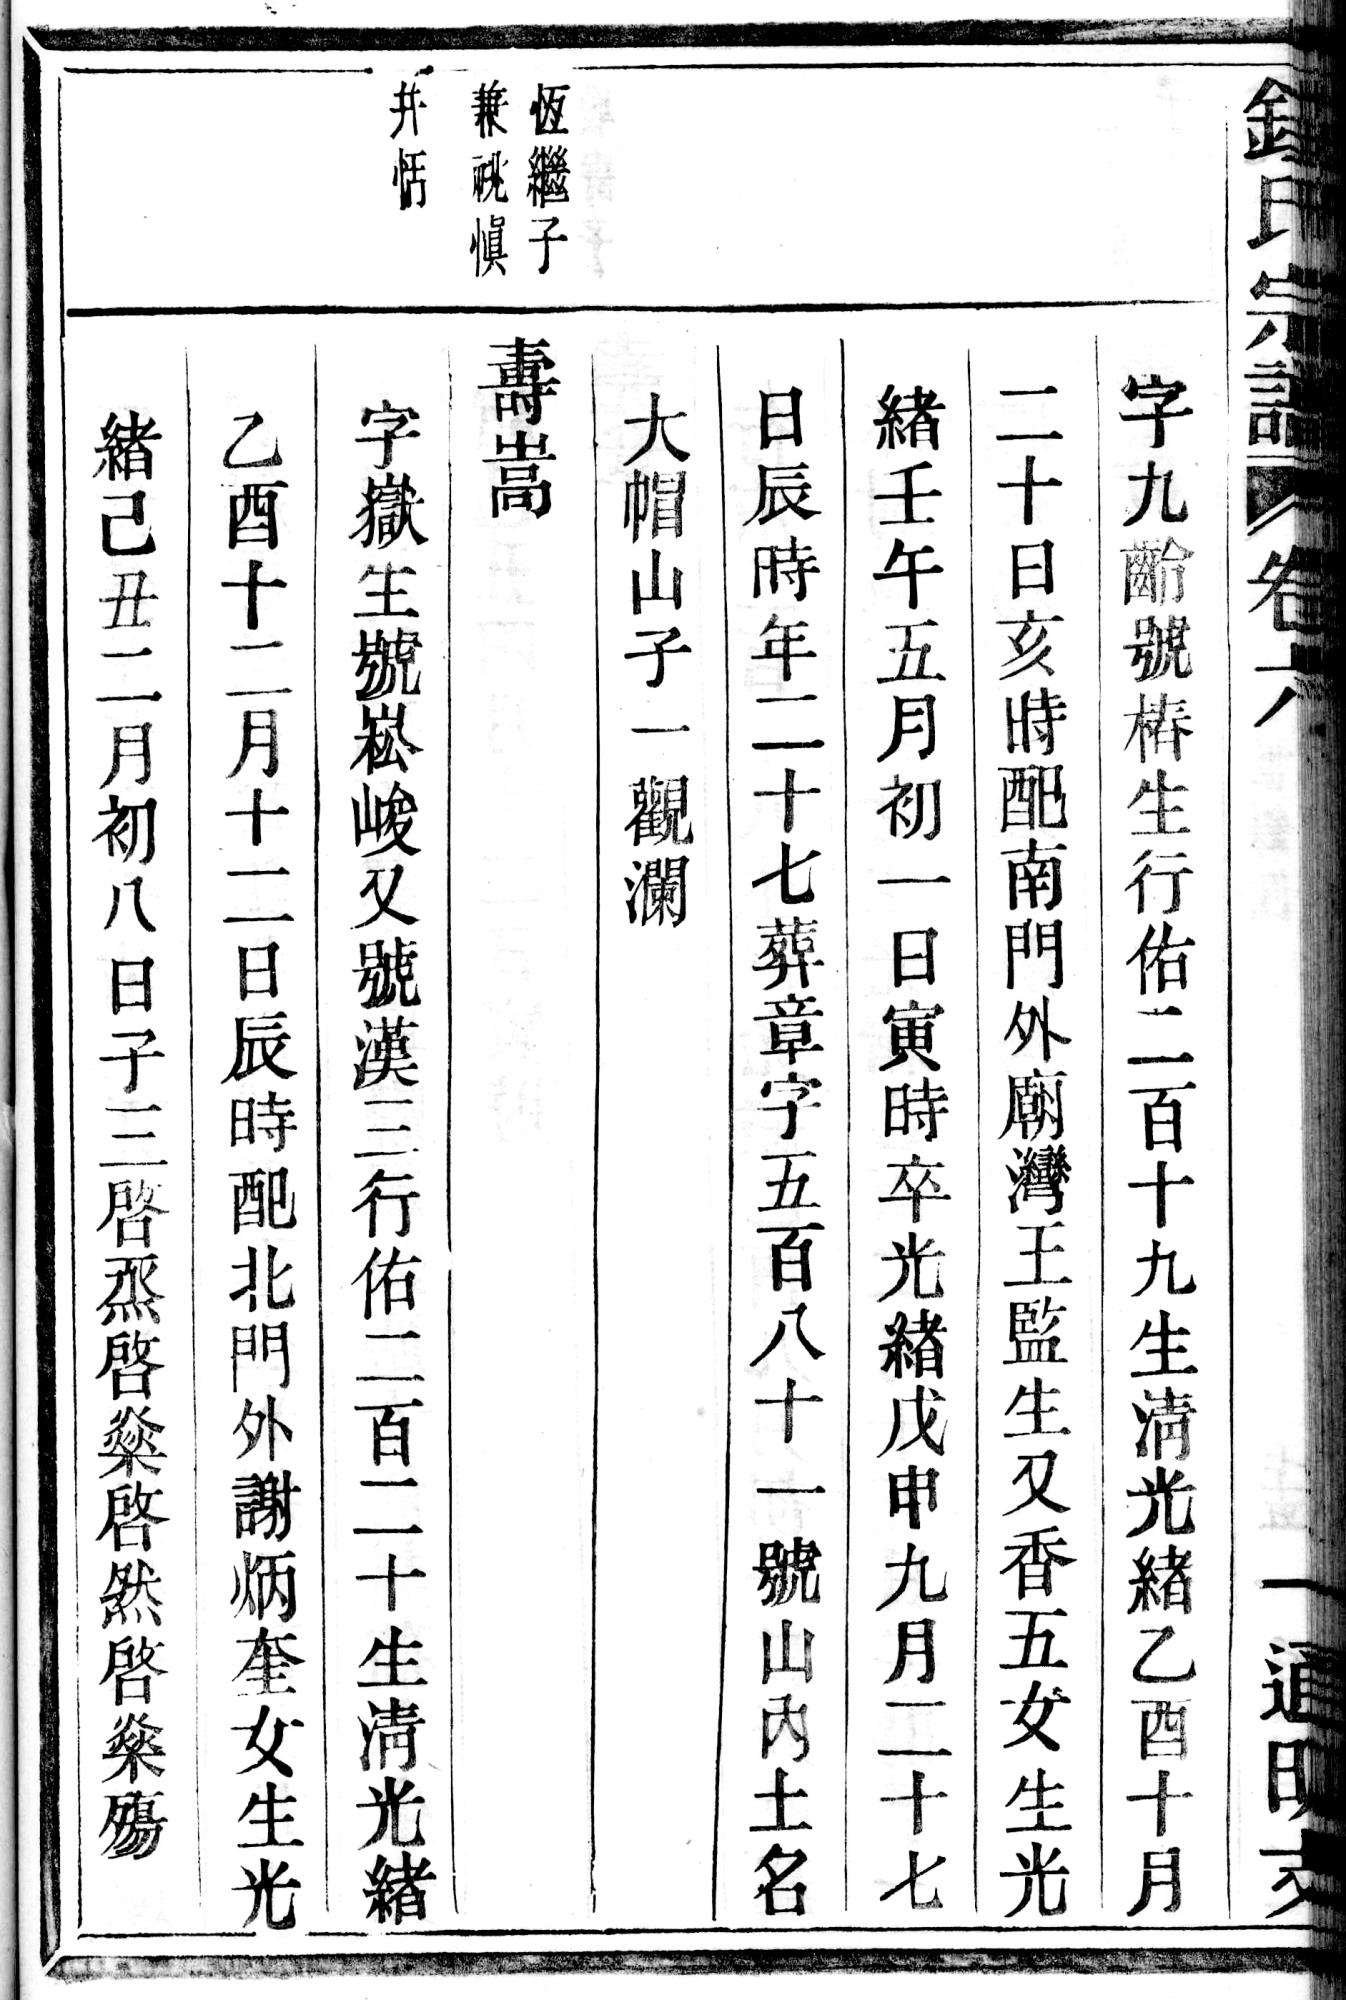 氏宗譜 卷六 一 通明支
字九齡號椿生行佑二百十九生淸光緒乙酉十月
二十日亥時配南門外廟灣王監生又香五女生光
緒壬午五月初一日寅時卒光緒戊申九月二十七
日辰時年二十七葬章字五百八十一號山內土名
大帽山子一觀瀾
恆繼子
兼祧愼
幷恬
壽嵩
字嶽生號崧峻又號漢三行佑二百二十生淸光緒
乙酉十二月十二日辰時配北門外謝炳奎女生光
緒己丑二月初八日子三啓烝啓燊啓然啓燊殤